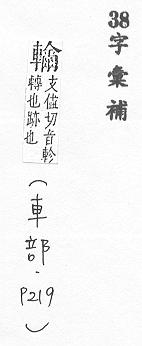 38字彙補
支儘切音軫
轉也跡也
（車部．P219）